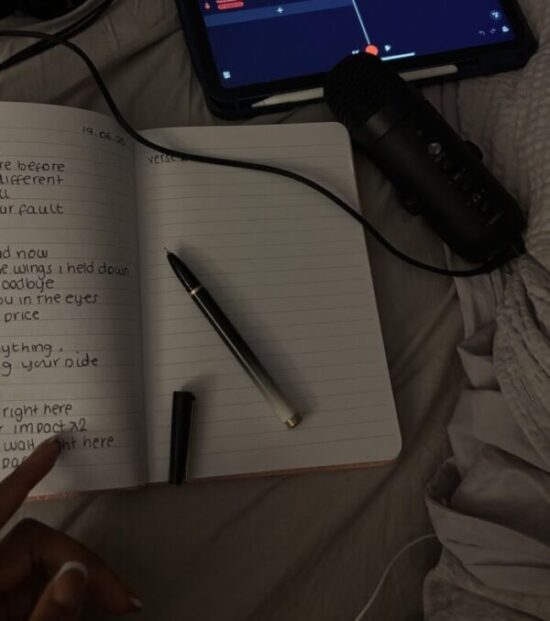 19.06.
verse
re before
different
u
ur fault
nd now
e wings i held down
oodbye
ou in the eyes
price
ything,
g your side
right here
r impact x2
wait right here
pa